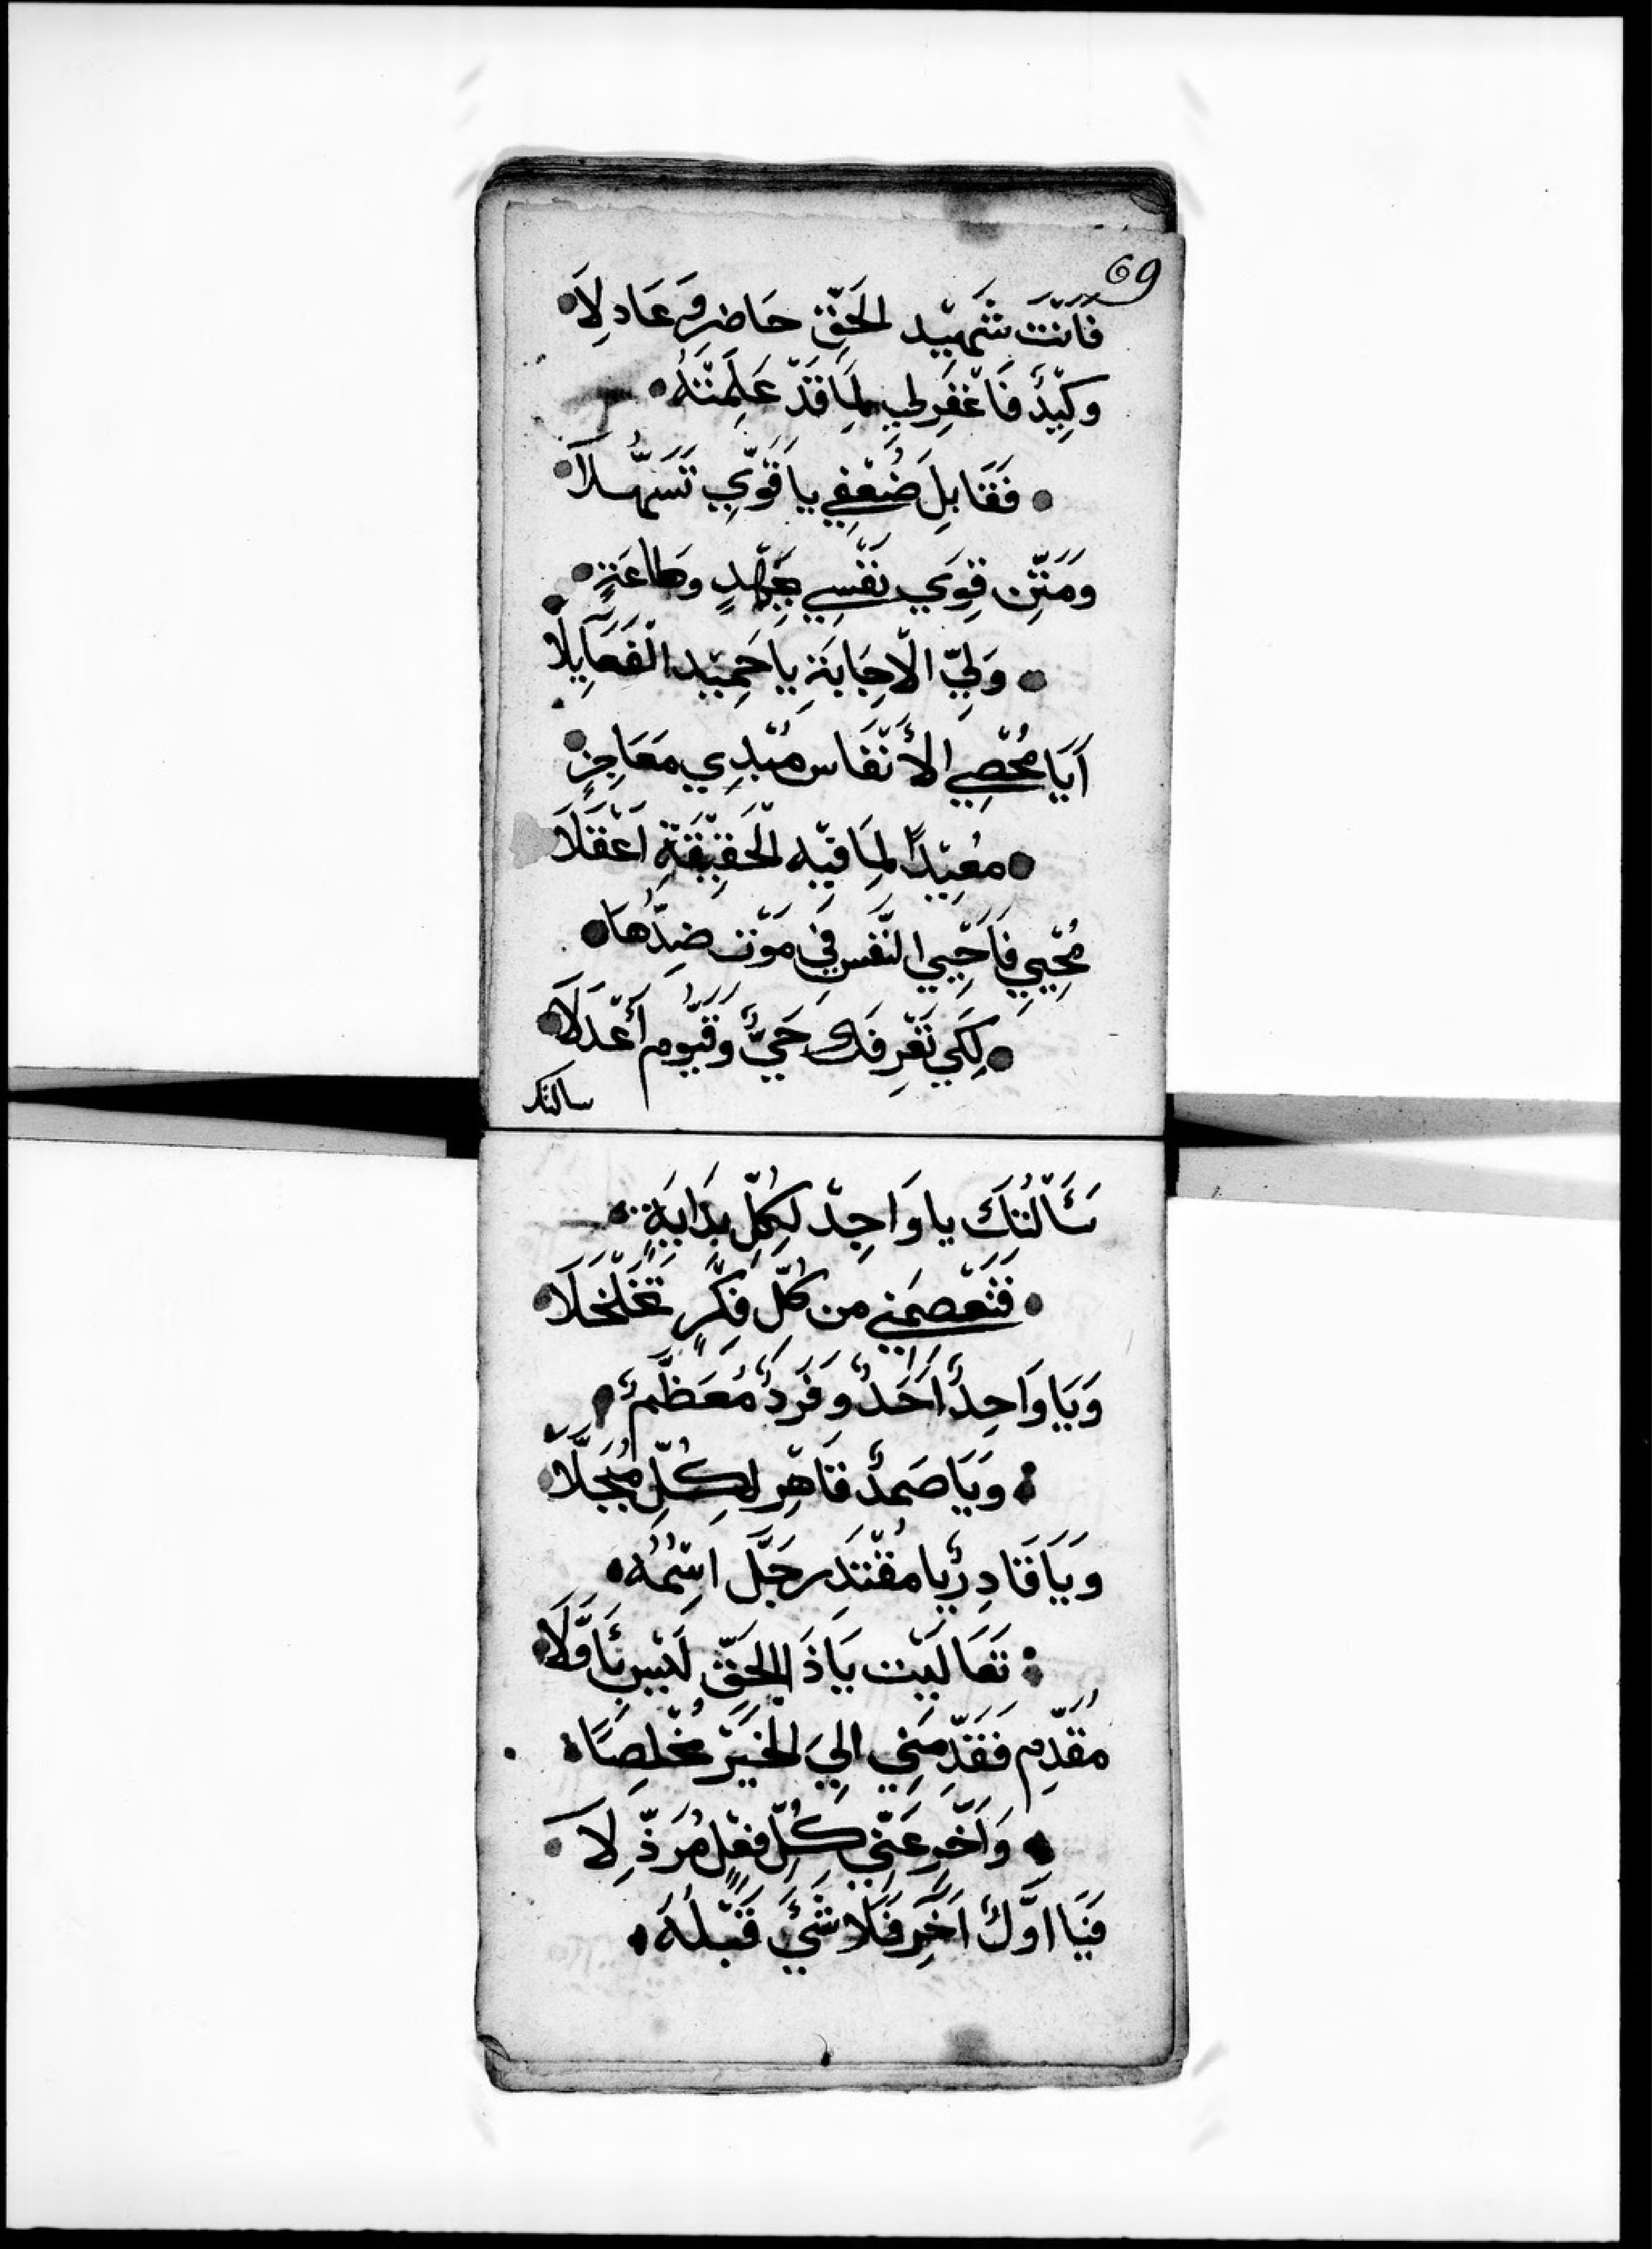 69
فَاَنْتَ شَهِيْد الحَقِّ حَاضِر وَعَادِلَا
وكِيْدٌ فَاغْفِرلي لِمَا قَدْ عَلِمْتَهُ
فَقَابِل ضُعْفِي يَا قَوِّي تَسَهُّلَا
وَمَتِّن قِوَي نَفْسِي بِجَهْدٍ وطاعَةٍ
وَلِيّ الْاِجَابَةِ يا حَمِيْد الْفَعَايِلَا
اَيَا مُحْصِي الأَنْفَاس مُبْدِي مَعَاجِزٍ
مُعِيْدًا لِمَا فيْهِ الْحَقِيْقَةِ اَعْقَلَا
مُحْيِي فَاَحْيِي النَّفس في مَوْت ضِدُّهَا
لِكَي تَعْرِفَك حَيٌّ وَقَيُّوم أَعْدَلَا
سالتك
سَأَلْتُكَ يا وَاجِدْ لِكُلِّ بدَايَةٍ
فَتَعْصِمَني من كُلّ فِكْرٍ تَخَلْخَلَا
وَيَا وَاحِدٌ اَحَدٌ وفَرْدٌ مُعَظَّمٌ
وَيَا صَمَدٌ قَاهِر لِكُلِّ مُبَجَّلَا
وَيَا قَادِرٌ يا مُقْتَدِر جَلَّ اسْمُهُ
تَعَالَيْت يَا ذَا الحَقّ لَيْس تَأَوَّلَا
مُقَدِّم فَقَدِّمْنِي اِلَيَ الْخَيْر مُخْلِصًا
وَاَخِّر عَنِّي كُلّ فِعْل مُرَذِّلَا
فَيَا اوَّلٌ اَخِر فَلَا شَيْءَ قَبْلَهُ